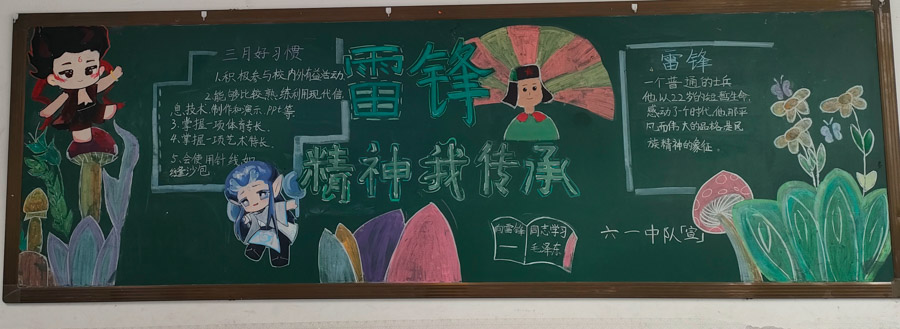 三月好习惯
1.积极参与校内外有益活动
2.能够比较熟练利用现代信
息技术制作和演示PPt等
3.掌握一项体育专长.
4.掌握一项艺术特长.
5.会使用针线,如
沙包
雷锋
精神我传承
向雷锋同志学习
毛泽东
六一中队「宣」
雷锋
一个普通的士兵
他,从22岁的短暂生命,
感动了一个时代,他,用平
凡而伟大的品格,是民
族精神的象征.